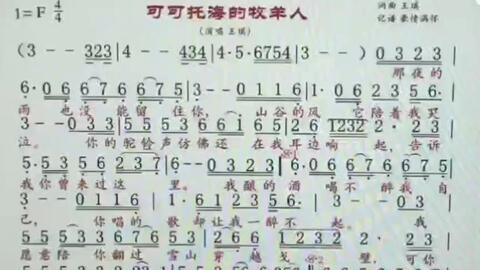 1=F 4/4 可可托海的牧羊人 词曲 王琪
(演唱 王琪) 记谱 豪情满怀
(3 - - 323 | 4 - - 434 | 4·5·6754 | 3 - - ) | 0 3 2 3 |
那夜的
6·0 6 6 7 6 6 7 6 | 5·0 1 1 6 | 1·0 6 6 7 6 6 7 5 |
雨 也没能留住你, 山谷的风 它陪着我哭
3 - - 0 3 3 | 5 5 5 3 5 6 6 i 6 | 5 3 2 6 1232 | 2· 0 2 3 |
泣。 你的驼铃声仿佛还在我耳边响起 告诉
5·5 5 3 5 6 2 3 7 | 6 - - 0 | 0 3 2 3 | 6·0 6 6 7 6 6 7 5 |
我你曾来过这里。 我酿的酒 喝不醉我自
3 - - 0 1 1 6 | 1·0 6 1 2 3 5 6· | 3 - - 0 2 3 |
己, 你唱的歌却让我一醉不起。 我
5 5 5 3 5 6 7 6 5 3 | 2· 6 6 1 2 3 2 | 2 - - 0 2 3 |
愿意陪你翻过雪山穿越戈壁, 可你